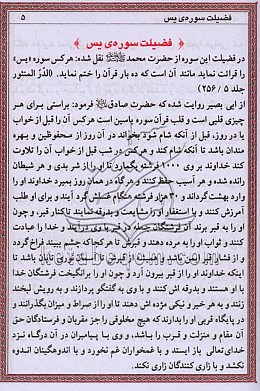 فضیلت سوره‌ی یس ۵
فضیلت سوره‌ی یس
در فضیلت این سوره از حضرت محمد ﷺ نقل شده: هر کس سوره «یس»
را قرائت نماید مانند آن است که ده بار قرآن را ختم نماید. (الدّر المنثور
جلد ۵ / ۲۵۶)
از ابی بصیر روایت شده که حضرت صادق فرمود: براستی برای هر
چیزی قلبی است و قلب قرآن سوره یاسین است هر کس آن را قبل از خواب
یا در روز، قبل از آنکه شام شود بخواند در آن روز از محفوظین و بهره
مندان باشد تا آنکه شام کند و هر کس در شب قبل از خواب آن را تلاوت
کند خداوند بر وی ۱۰۰۰ فرشته بگمارد تا او را از شر بدی و هر شیطان
رانده شده و هر آسیب حفظ کنند و هر گاه در همان روز بمیرد خداوند او را
وارد بهشت گرداند و هزار فرشته هنگام غسلش گرد آیند و برای او طلب
آمرزش کنند و با استغفار او را مشایعت و بدرقه نمایند تا کنار قبر، و چون
او را به قبر برند آن فرشتگان در قبر با وی درآیند و خدا را عبادت
کنند و ثواب او را به مرده دهند و قبرش تا هر کجا که چشم ببیند فراخ گردد
و از فشار قبر ایمن باشد و همیشه از قبرش تا آسمان نوری تابان باشد تا
اینکه خداوند او را از قبر بیرون آرد و چون او را برانگیخت فرشتگان خدا
با او هستند و بدرقه اش کنند و با وی به گفتگو پردازند و به رویش لبخند
زنند و به هر خیر و نیکی مژده اش دهند تا او را از صراط و میزان بگذرانند و
در پایگاه قربی او را بدارند که هیچ مخلوقی را جز مقربان و فرستادگان حق
آن مقام و منزلت و قرب را نباشد، و وی با پیامبران در آن درگاه نزد
خدای تعالی باز ایستد و با غمخواران غم نخورد و با اندوهگینان اندوه
نکشد و با زاری کنندگان زاری نکند.